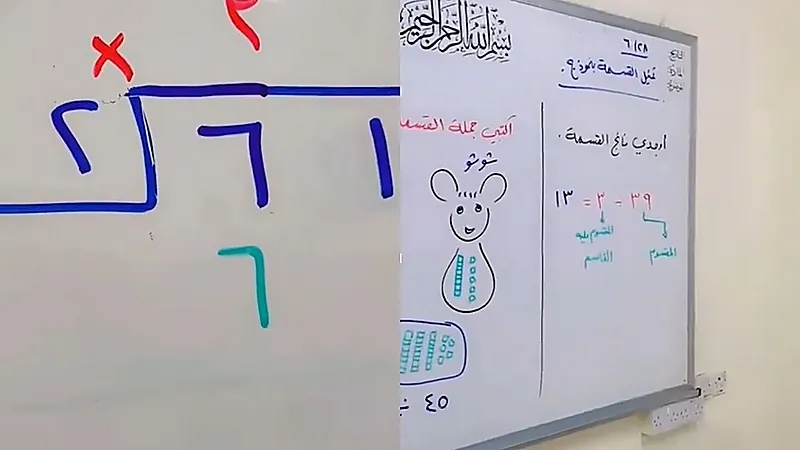 ×
٢ ٦ ١
٦
بسم الله الرحمن الرحيم
٦/٢٨
تمثيل القسمة بنموذج.
أوجدي ناتج القسمة.
٣٩ ÷ ٣ = ١٣
المقسوم
المقسوم عليه
القاسم
اكتبي جملة القسمة
شوشو
٤٥